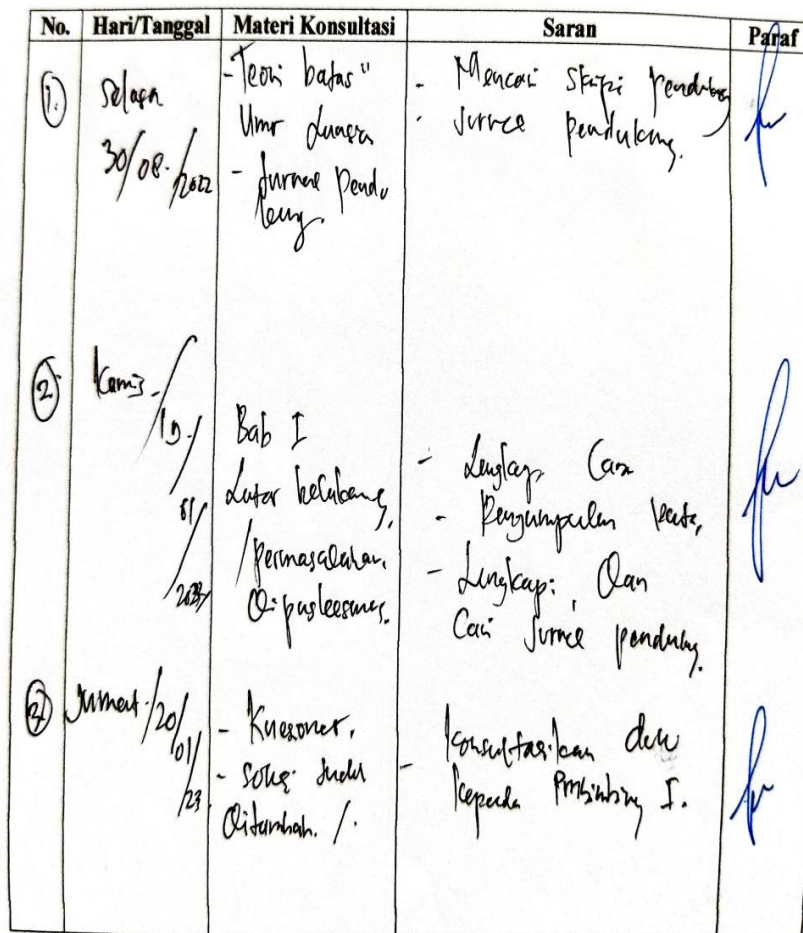 No. Hari/Tanggal Materi Konsultasi Saran Paraf
1.
Selasa
30/08/2022
- Teori batas"
Umur
- Jurnal Pendu
kung.
- Mencari Skripsi pendukung
- Jurnal pendukung.
2.
Kamis
19/
01/
2023
Bab I
Latar belakang,
/permasalahan.
Di puskesmas.
- Lengkapi Cara
- Pengumpulan Data,
- Lengkapi, Dan
Cari Jurnal pendukung.
3.
Jumat/20/
01/
23
- Kuesoner.
Ditambah.
- Konsultasikan dulu
kepada Pembimbing I.